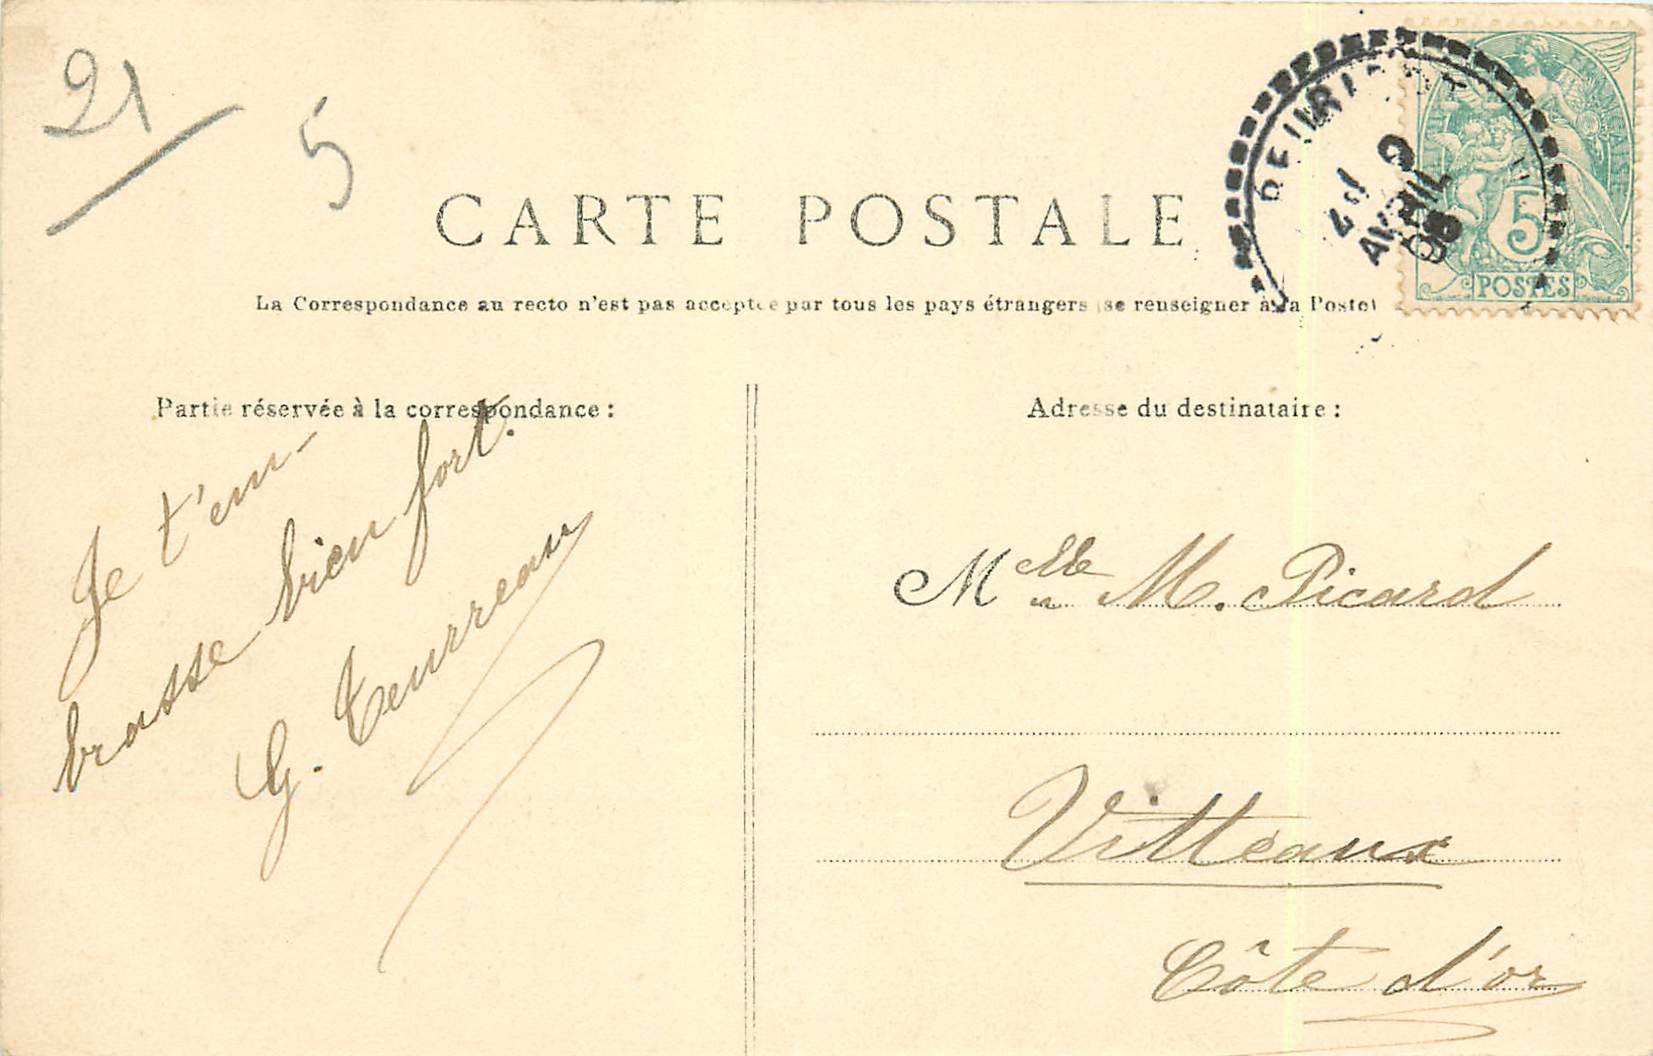 21
5
CARTE POSTALE
La Correspondance au recto n'est pas acceptée par tous les pays étrangers (se renseigner à la Poste)
Partie réservée à la correspondance :
Je t'em-
brasse bien fort.
G. Teurreau
Adresse du destinataire :
Melle M. Picard
Vitteaux
Côte d'or
AVRIL
5
POSTES